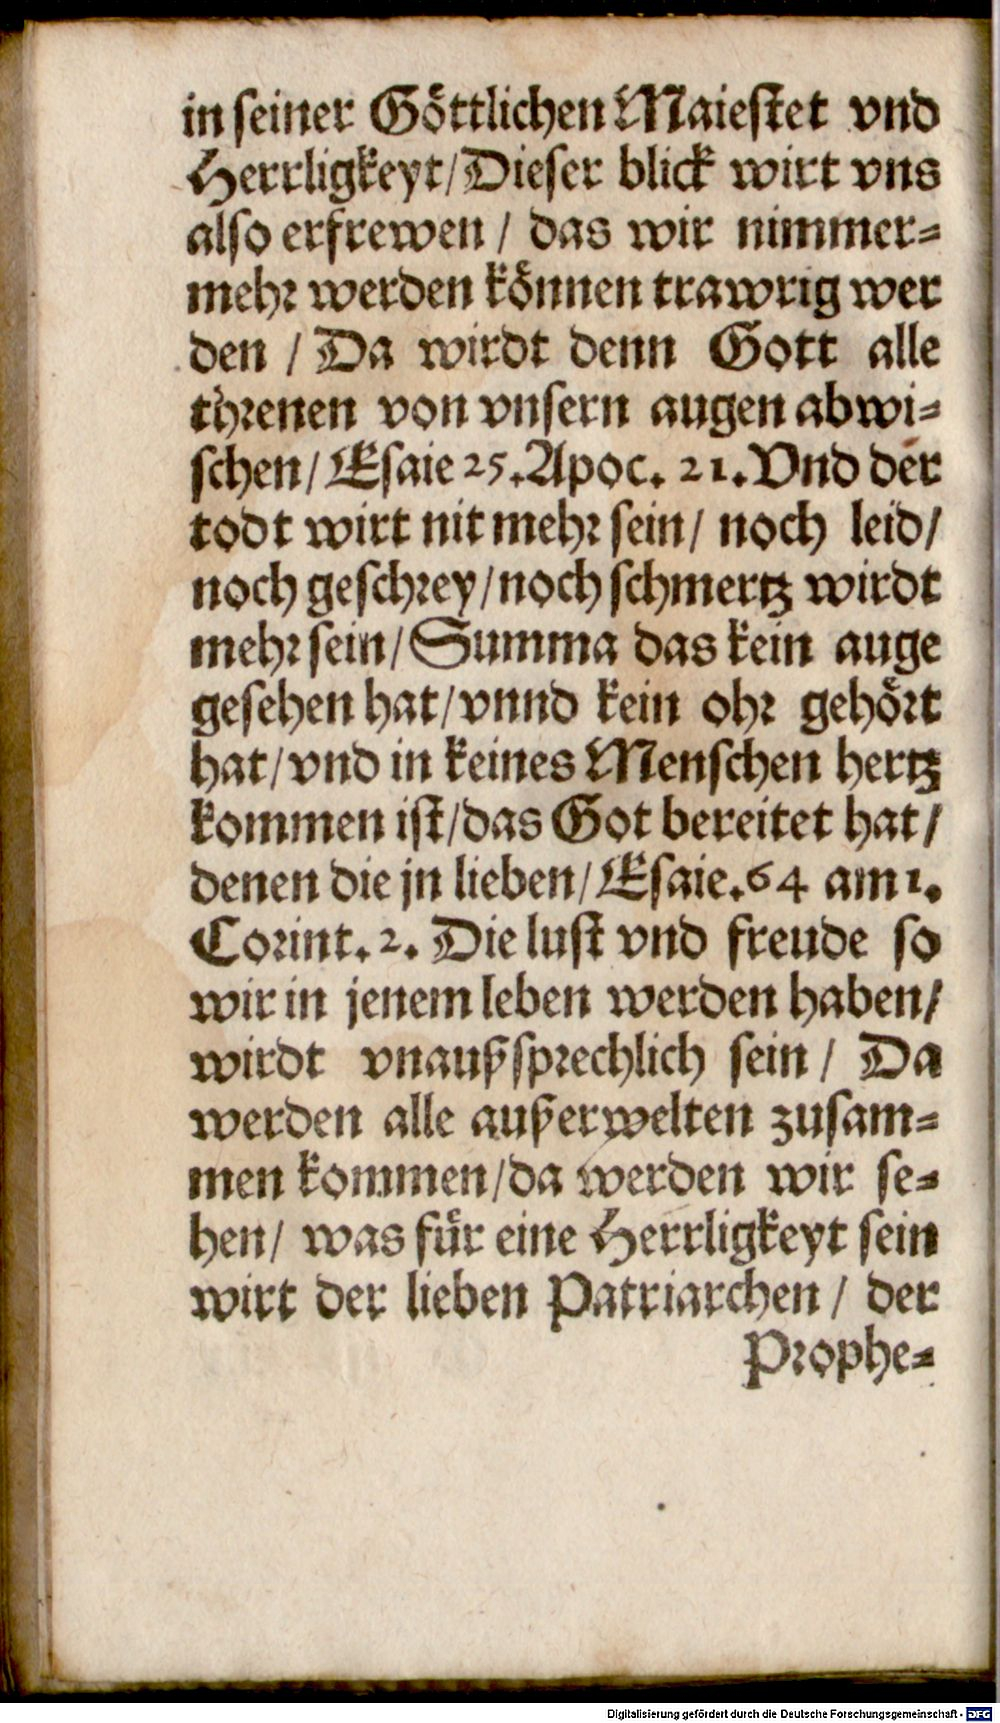 in seiner Göttlichen Maiestet vnd
Herrligkeyt/Dieser blick wirt vns
also erfrewen / das wir nimmer=
mehr werden können trawrig wer
den / Da wirdt denn Gott alle
threnen von vnsern augen abwi=
schen/ Esaie 25. Apoc. 21. Vnd der
todt wirt nit mehr sein/ noch leid/
noch geschrey/noch schmertz wirdt
mehr sein/ Summa das kein auge
gesehen hat/vnnd kein ohr gehört
hat/vnd in keines Menschen hertz
kommen ist/das Got bereitet hat/
denen die jn lieben/ Esaie.64 am 1.
Corint. 2. Die lust vnd freude so
wir in jenem leben werden haben/
wirdt vnaußsprechlich sein / Da
werden alle außerwelten zusam=
men kommen/da werden wir se=
hen/ was für eine Herrligkeyt sein
wirt der lieben Patriarchen / der
Prophe=
Digitalisierung gefördert durch die Deutsche Forschungsgemeinschaft - DFG